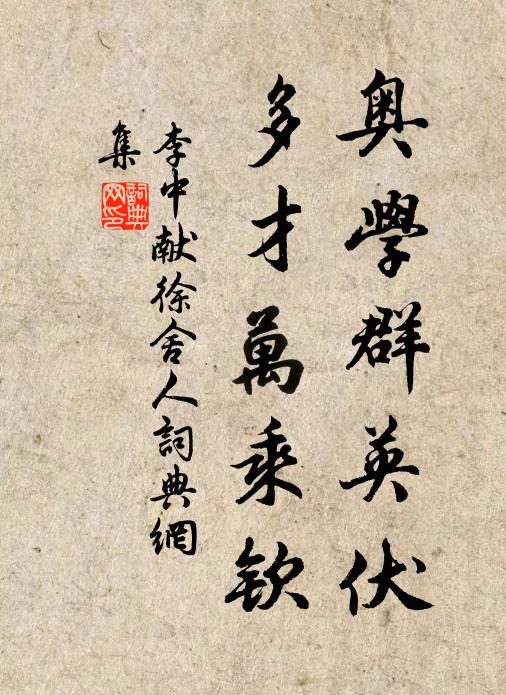 奧學群英伏
多才萬乘欽
李中献徐舍人詞典網
集
詞典網印